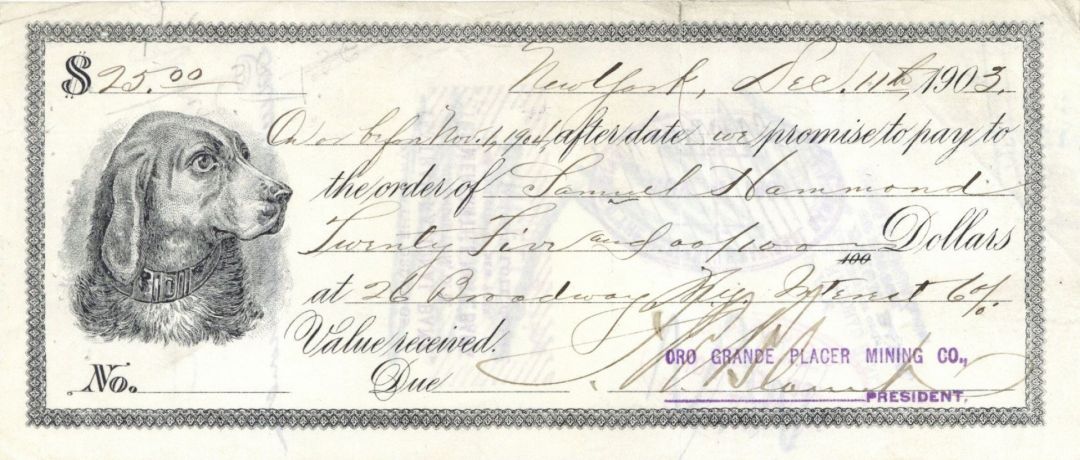 $ 25.00 New York, Dec. 11th, 1903.
On or before Nov. 1, 1904, after date we promise to pay to
the order of Samuel Hammond
Twenty Five and 00/100 Dollars
100
at 26 Broadway, Interest 6%.
Value received.
ORO GRANDE PLACER MINING CO.,
No. Due
PRESIDENT.